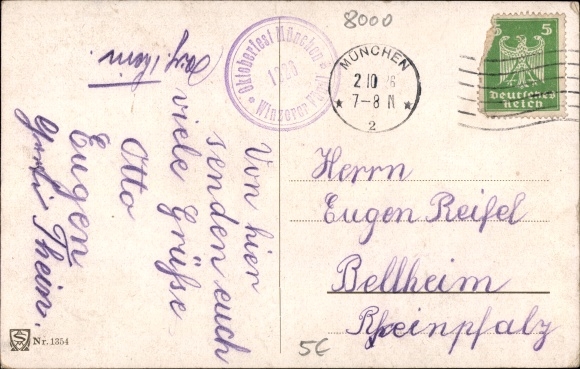 8000
Oktoberfest München
1926
Winzerer
MÜNCHEN
2.10.26
7-8 N
2
5 5
Deutsches
Reich
Von hier
senden euch
viele Grüße
Otto
Eugen
Thein.
Herrn
Eugen Reifel
Bellheim
Rheinpfalz
5€
Nr. 1354